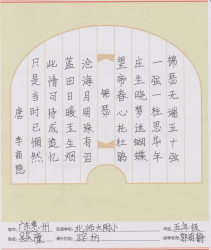 锦瑟无端五十弦
一弦一柱思华年
庄生晓梦迷蝴蝶
望帝春心托杜鹃
锦瑟
沧海月明珠有泪
蓝田日暖玉生烟
此情可待成追忆
只是当时已惘然
唐 李商隐
广东惠州
北师大附小
五年级